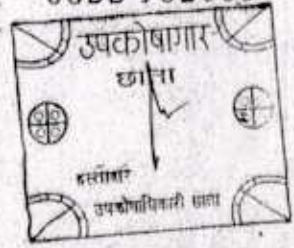 उपकोषागार
छाता
हस्ताक्षर
उपकोषाधिकारी छाता